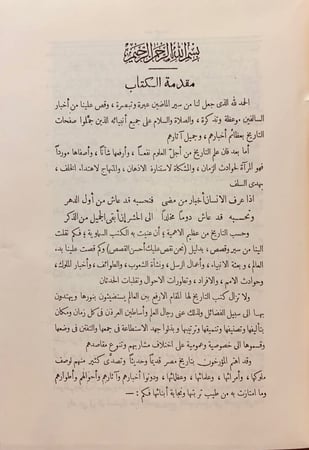 بسم الله الرحمن الرحيم
مقدمة الكتاب
الحمد لله الذى جعل لنا من سير الماضين عبرة وتبصرة ، وقص علينا من أخبار
السالفين موعظة وتذكرة ، والصلاة والسلام على جميع أنبيائه الذين جملوا صفحات
التاريخ بعظائم أخبارهم ، وجميل آثارهم
أما بعد فان علم التاريخ من أجل العلوم نفعاً ، وأرفعها شأناً ، وأصفاها مورداً
فهو المرآة لحوادث الزمان ، والمشكاة لاستنارة الاذهان ، والمنهاج لاهتداء الخلف ،
بهدى السلف
اذا عرف الانسان أخبار من مضى فتحسبه قد عاش من أول الدهر
وتحسبه قد عاش دوماً مخلداً الى الحشر إن أبقى الجميل من الذكر
وحسب التاريخ من عظيم الاهمية ؛ أن عنيت به الكتب السماوية ، فكم نقلت
الينا من سير وقصص ، بدليل (نحن نقص عليك أحسن القصص) وكم قصت علينا بدء
العالم ، وبعثة الانبياء ، وأعمال الرسل ، ونشأة الشعوب ، والطوائف ، وأخبار الملوك،
وحوادث الامم ، والافراد ، وتطورات الاحوال وتقلبات الحدثان
ولا تزال كتب التاريخ لها المقام الارفع بين العالم يستضيئون بنورها ويهتدون
بها الى سبيل الفضائل ولذلك عنى رجال العلم وأساطين العرفان فى كل زمان ومكان
بتأليفها وتصنيفها وتنميقها وترتيبها وبذلوا جهد الاستطاعة فى جمعها والتفنن فى وضعها
وقسموها الى خصوصية وعمومية على اختلاف مشاربهم وتنوع مقاصدهم
وقد اهتم المؤرخون بتاريخ مصر قديماً وحديثاً وتصدى كثير منهم لوصف
ملوكها ، وأمرائها ، وعلمائها ، وعظمائها ، ودونوا أخبارهم وآثارهم وأحوالهم وأطوارهم
وما امتازت به من طيب تربتها ونجابة أبنائها فكم : —